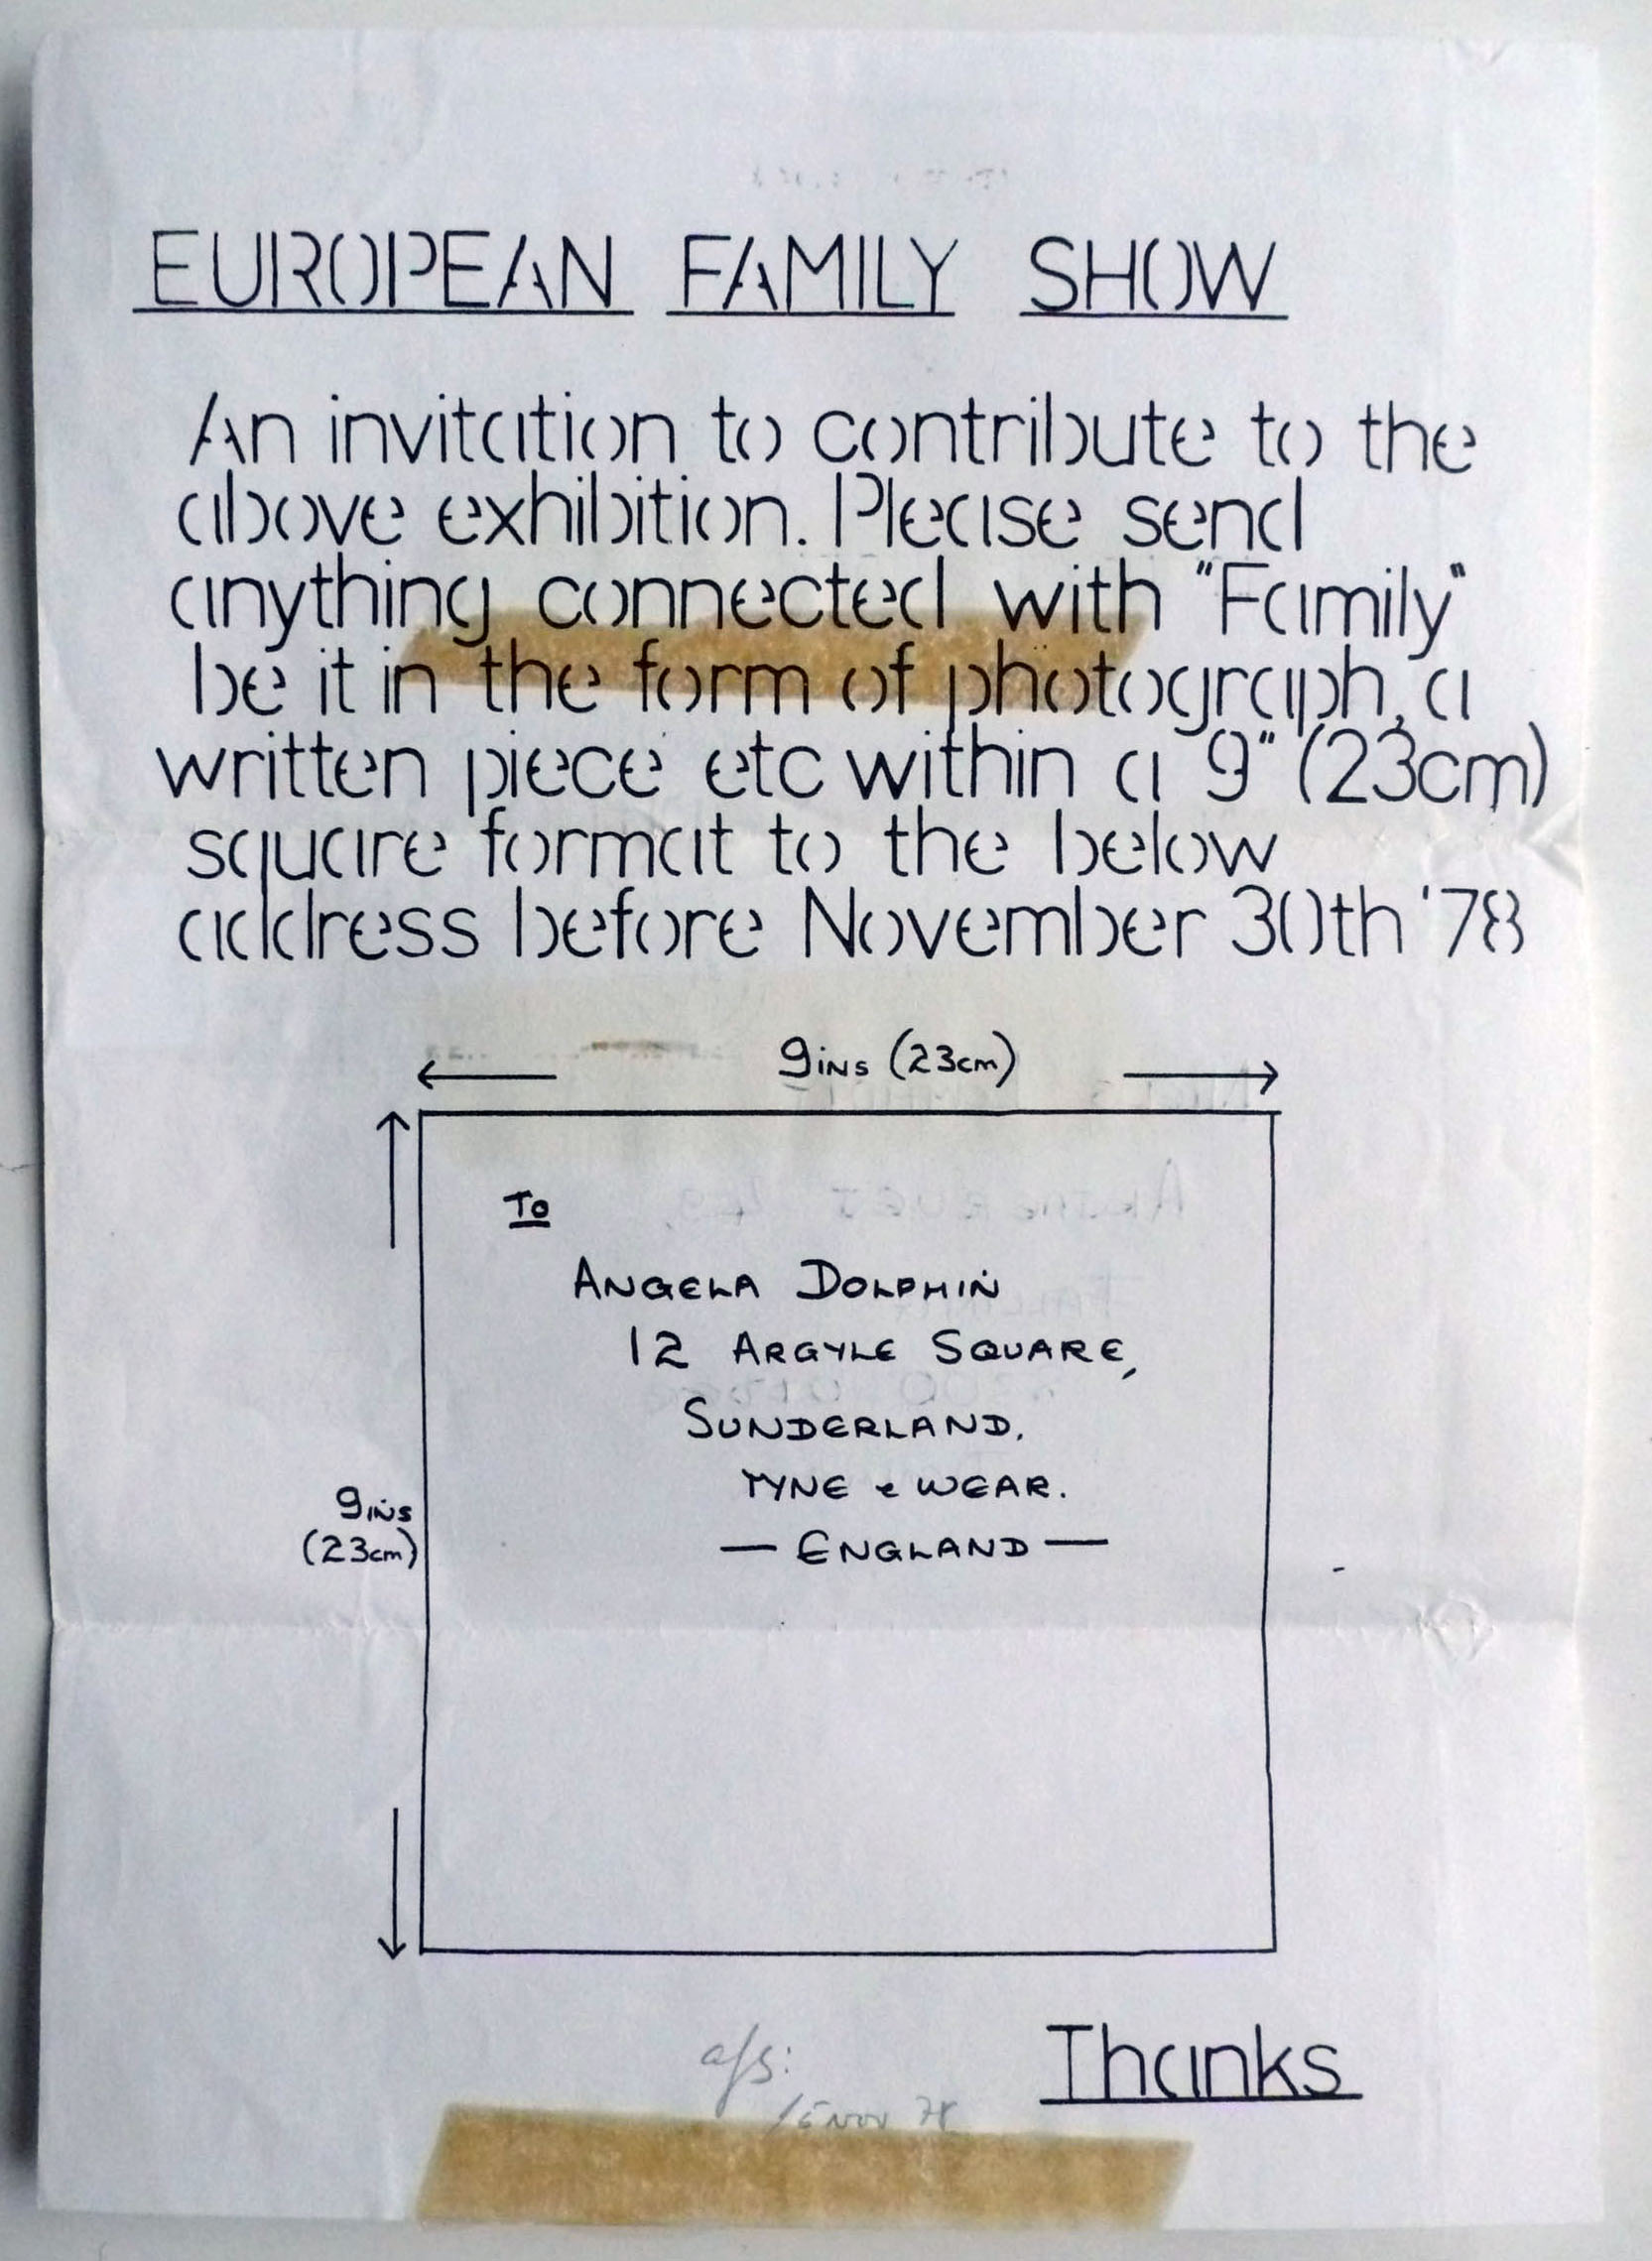 EUROPEAN FAMILY SHOW
An invitation to contribute to the
above exhibition. Please send
anything connected with "Family"
be it in the form of photograph, a
written piece etc within a 9" (23cm)
square format to the below
address before November 30th '78
9ins (23cm)
To
ANGELA DOLPHIN
12 ARGYLE SQUARE,
SUNDERLAND.
TYNE & WEAR.
— ENGLAND —
9ins
(23cm)
Thanks
15 NOV 78